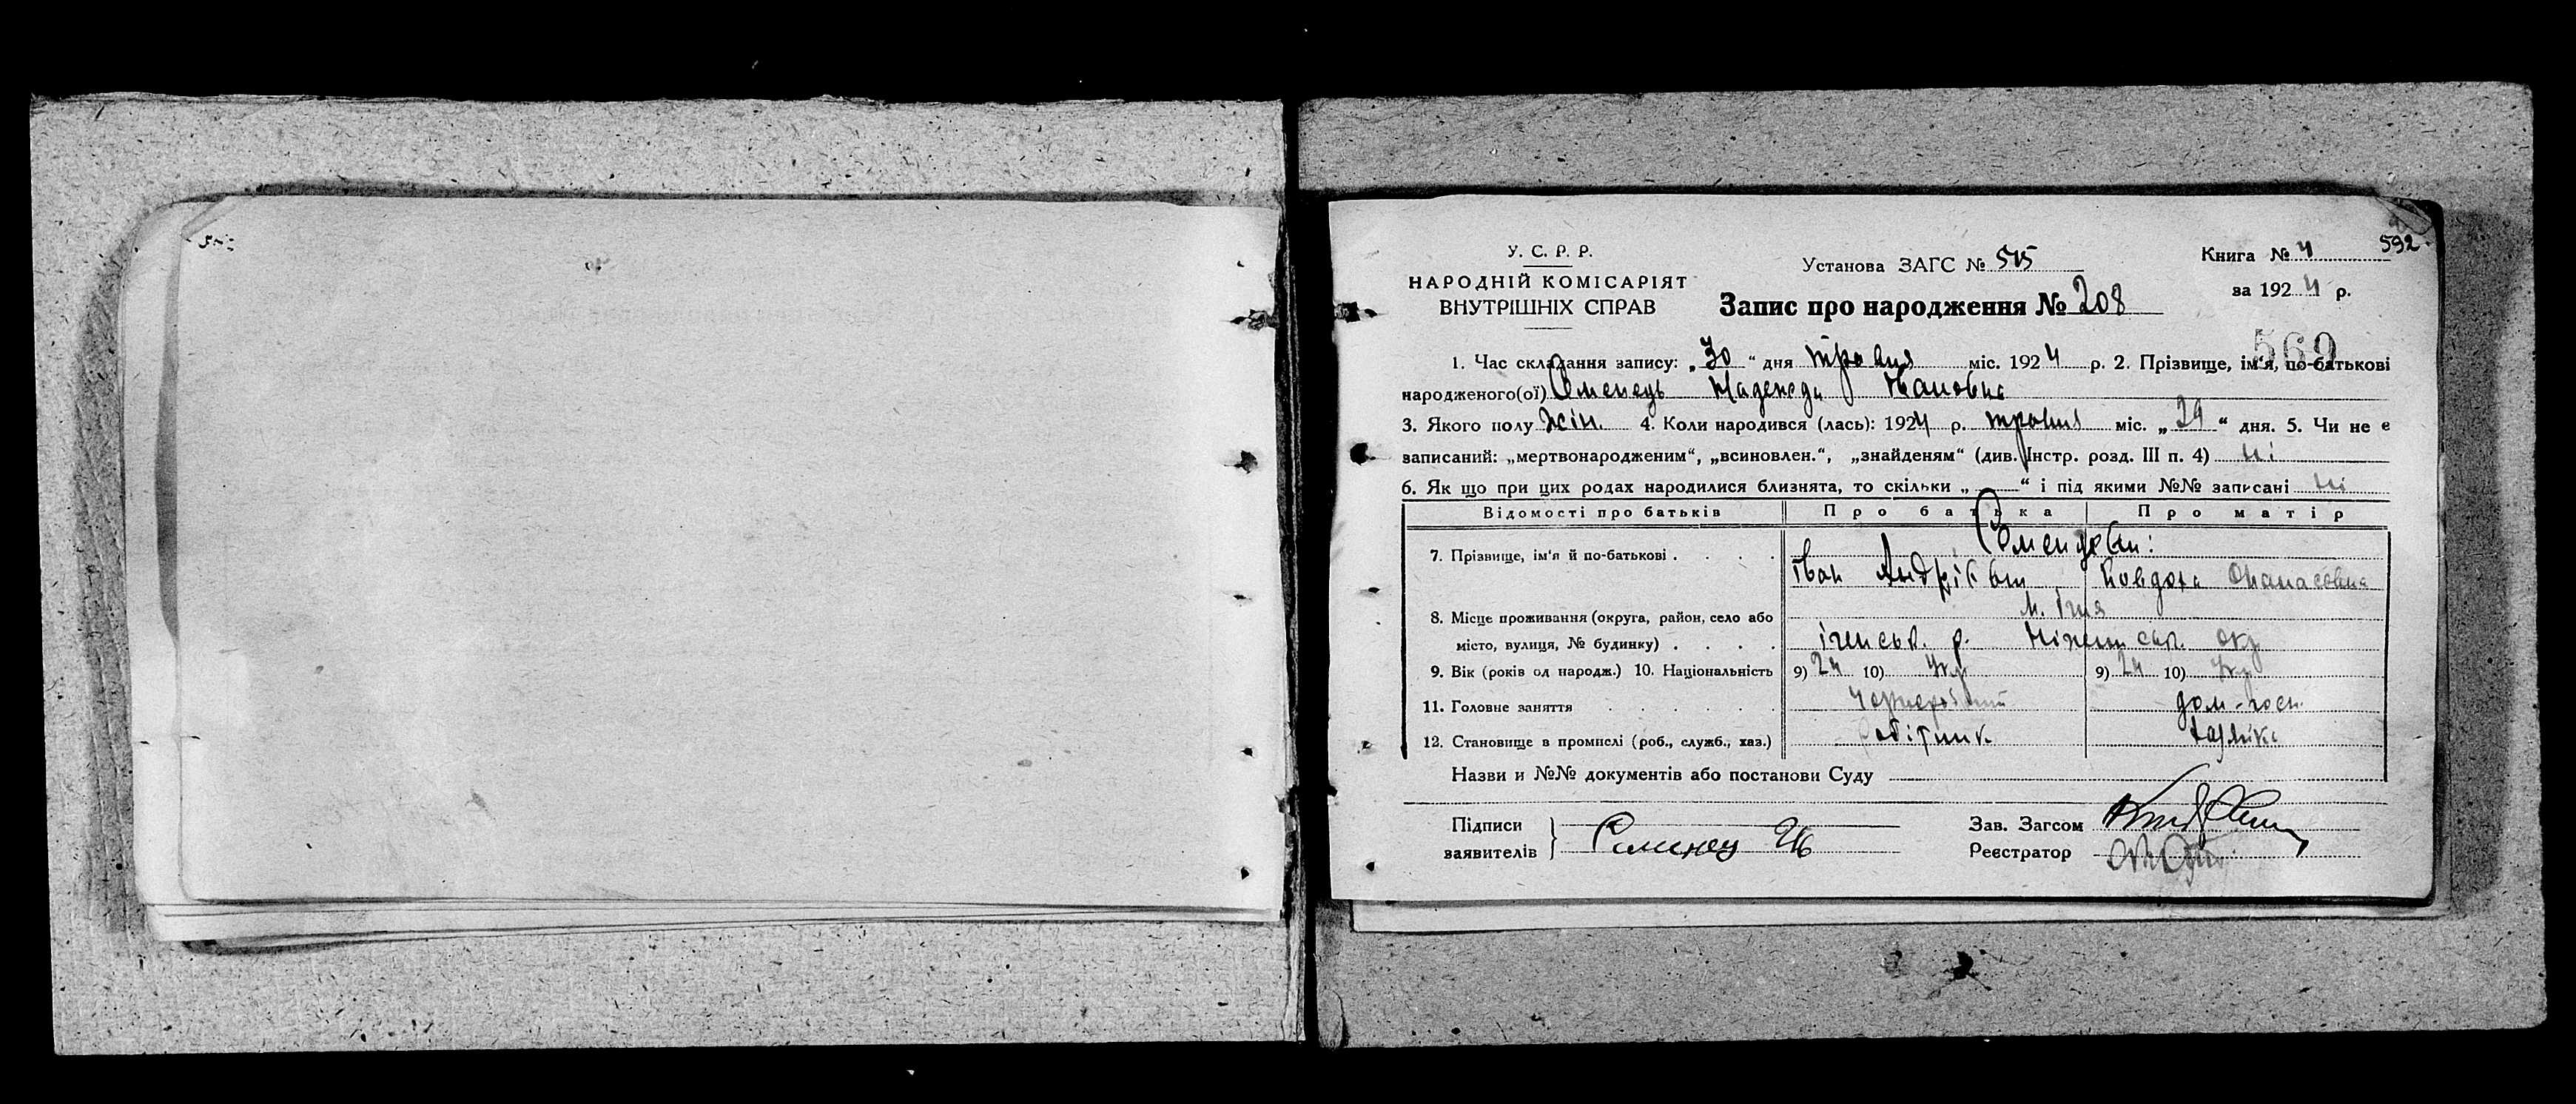 У. С. Р. Р.
НАРОДНІЙ КОМІСАРІЯТ
ВНУТРІШНІХ СПРАВ
Установа ЗАГС № 515
Книга № 4
592
Запис про народження № 208
за 1924 р.
569
1. Час складання запису: „30“ дня травня міс. 1924 р. 2. Прізвище, ім'я, по-батькові
народженого(ої) Надежда Івановна
3. Якого полу жін. 4. Коли народився (лась): 1924 р. травня міс. „29“ дня. 5. Чи не є
записаний: „мертвонародженим“, „всиновлен.“, „знайденям“ (див. Інстр. розд. III п. 4) ні
6. Як що при цих родах народилися близнята, то скільки „ “ і під якими №№ записані ні
Відомості про батьків Про батька Про матір
7. Прізвище, ім'я й по-батькові
Іван Андрієвич Явдоха Опанасовна
8. Місце проживання (округа, район, село або м. Ічня
місто, вулиця, № будинку) іченськ. р. Ніженськ. окр.
9. Вік (років од народж.) 10. Національність 9) 24 10) Укр 9) 24 10) Укр
11. Головне заняття дом-госп.
12. Становище в промислі (роб., служб., хаз.) робітник
Назви и №№ документів або постанови Суду
Підписи
заявителів
Зав. Загсом
Реєстратор